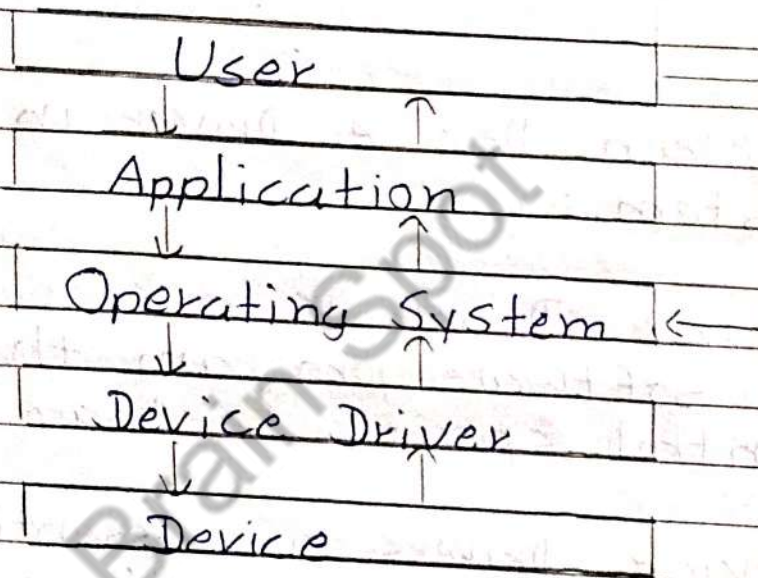 User
Application
Operating System
Device Driver
Device
Brain Spot